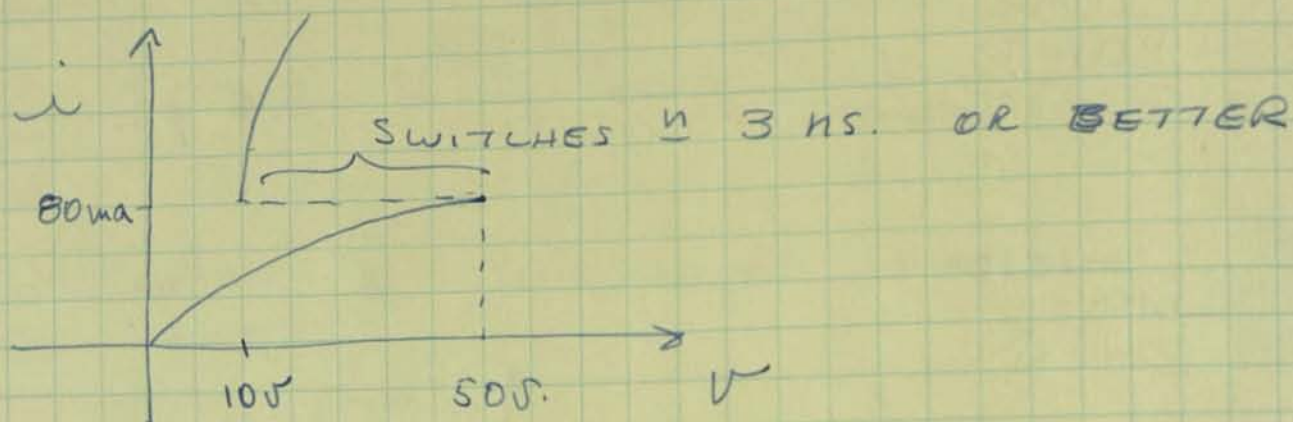 i
SWITCHES in 3 ns. OR BETTER
80ma
10v
50v.
v